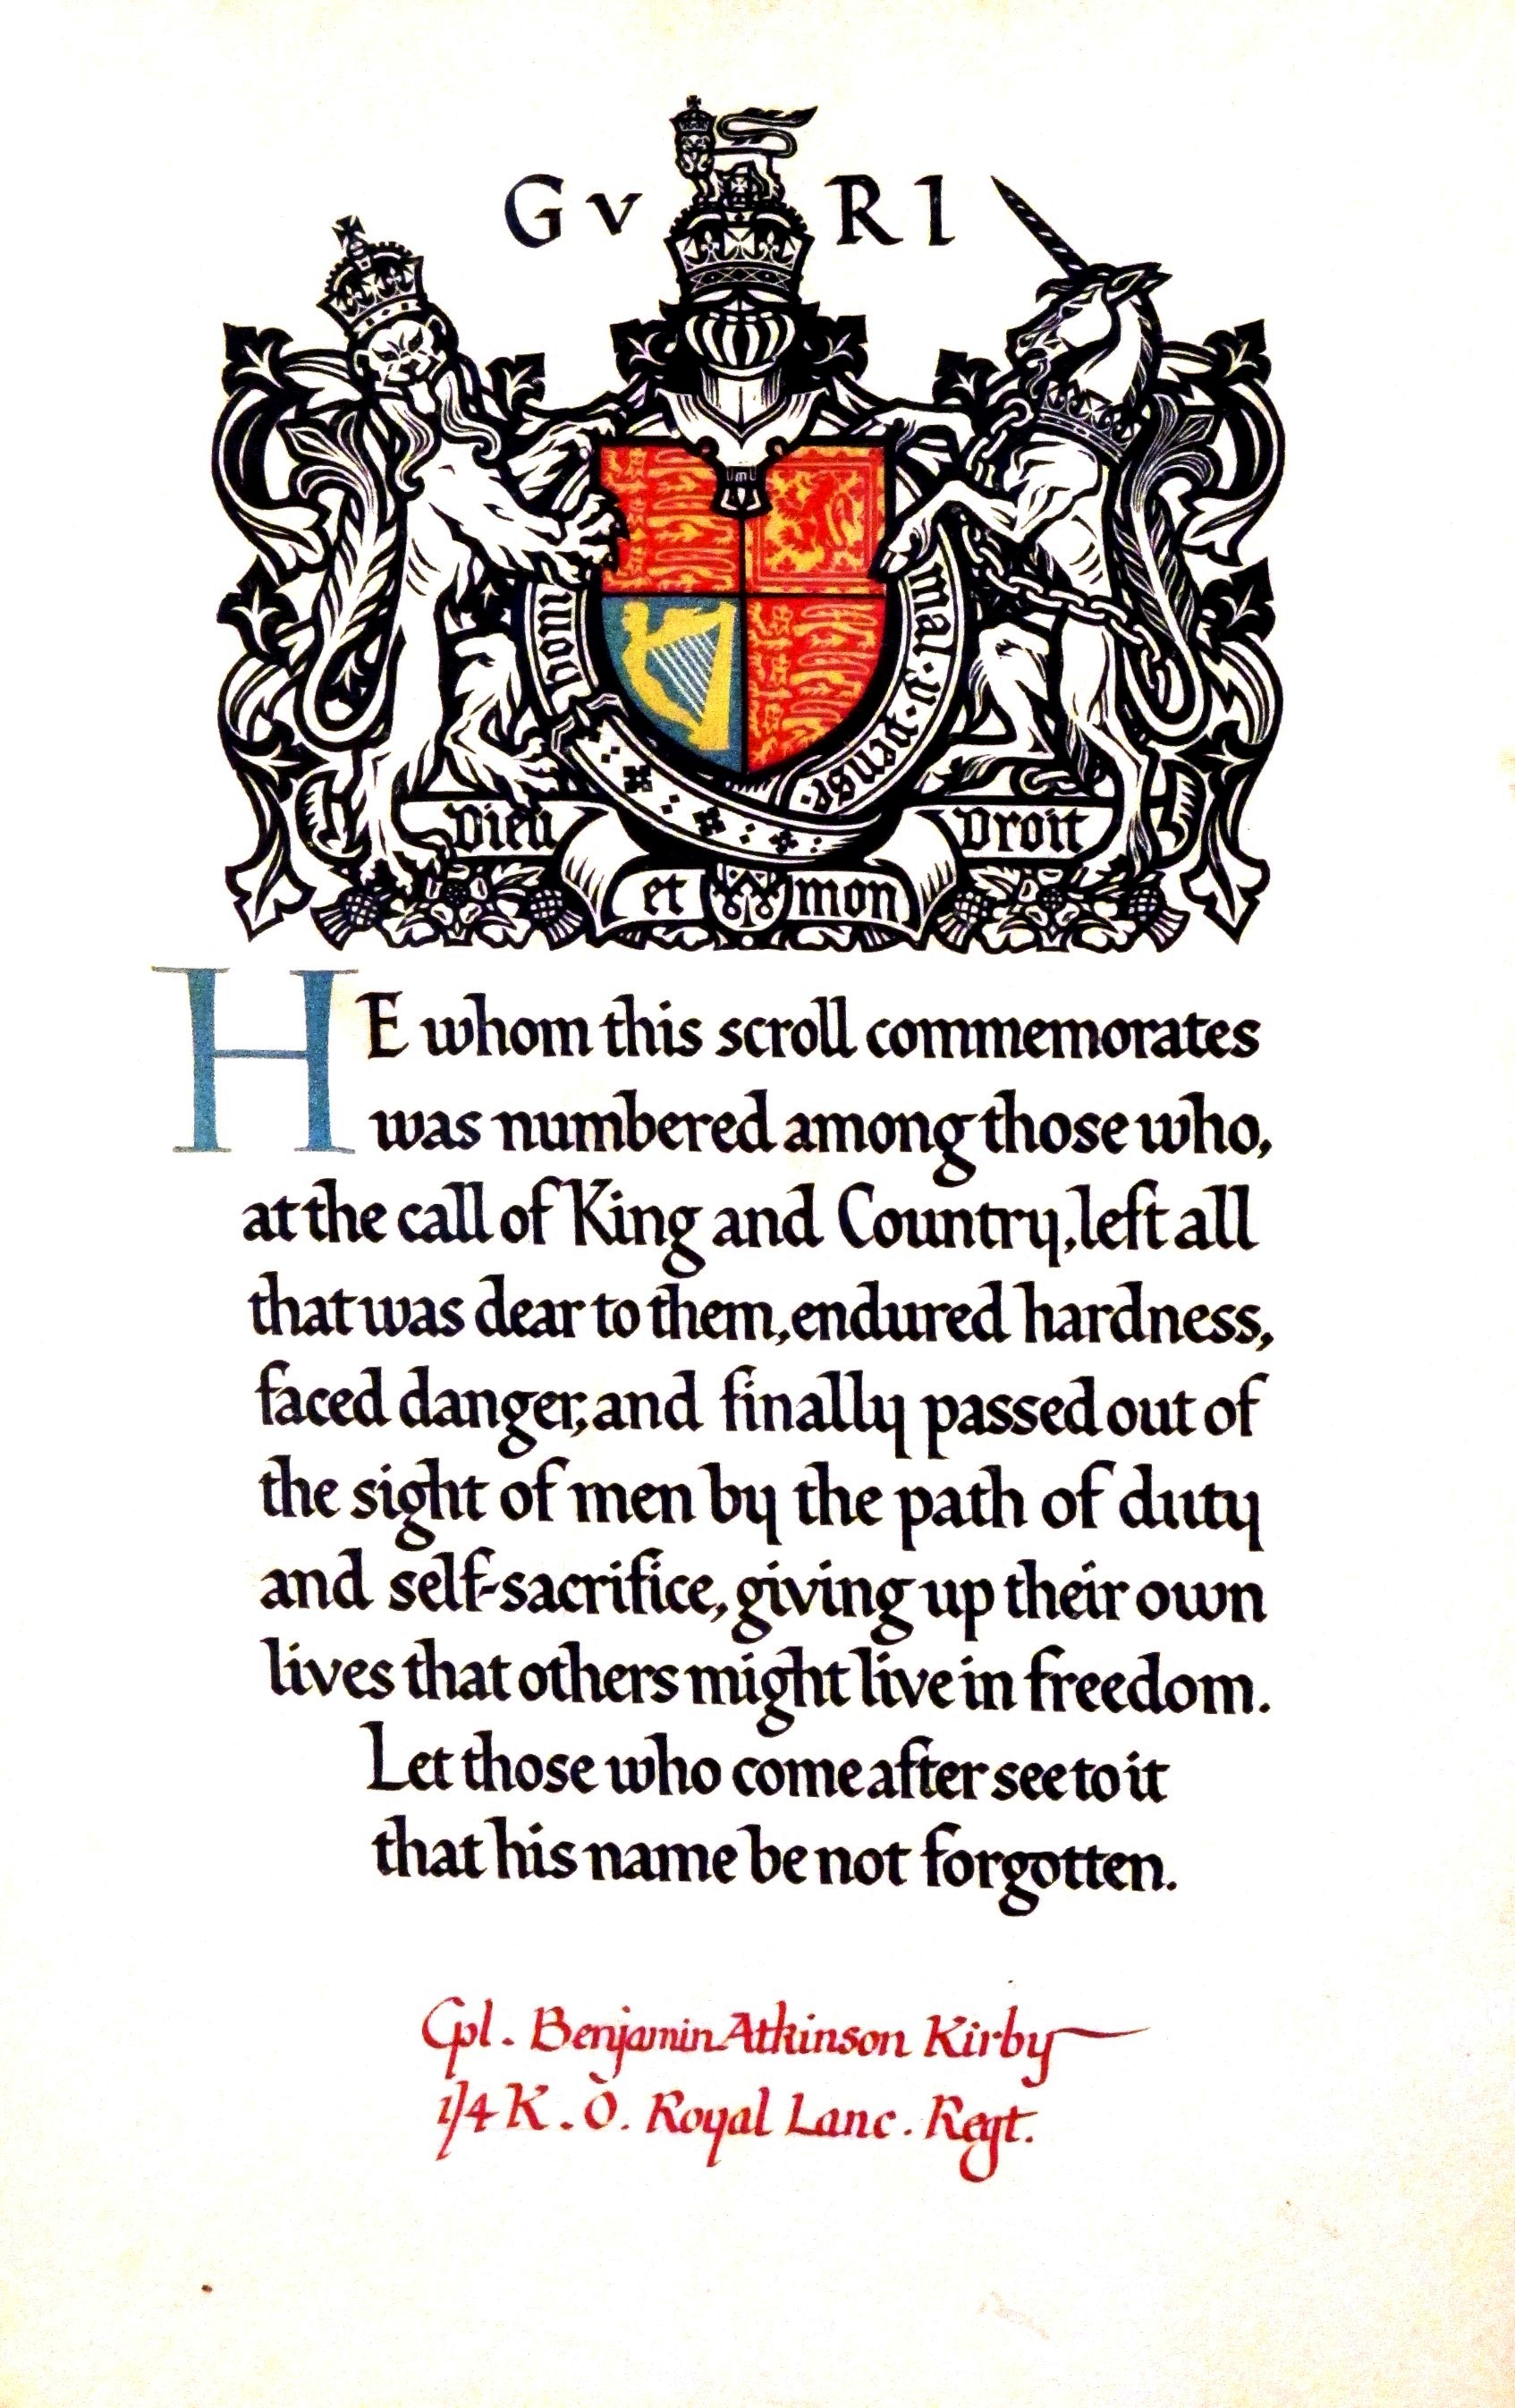 G V R I
hon
mal·y·pense·
Dieu Droit
et mon
HE whom this scroll commemorates
was numbered among those who,
at the call of King and Country, left all
that was dear to them, endured hardness,
faced danger, and finally passed out of
the sight of men by the path of duty
and self-sacrifice, giving up their own
lives that others might live in freedom.
Let those who come after see to it
that his name be not forgotten.
Cpl. Benjamin Atkinson Kirby
1/4 K. O. Royal Lanc. Regt.